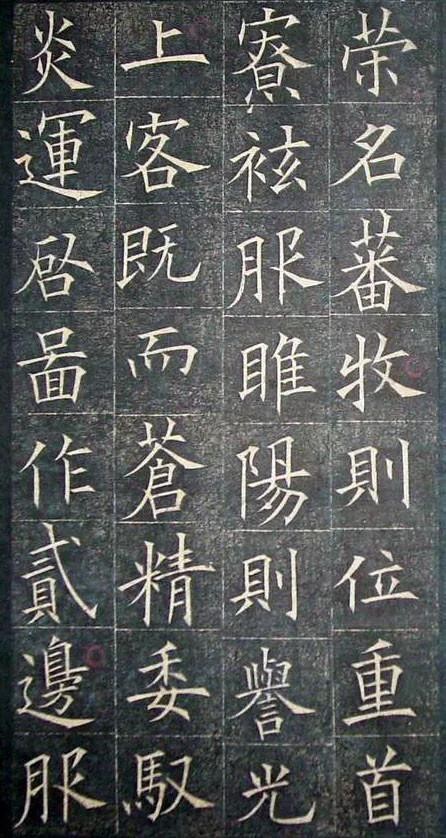 荣名蕃牧則位重首
寮袨服睢陽則譽光
上客既而蒼精委馭
炎運啓啚作貳邊服